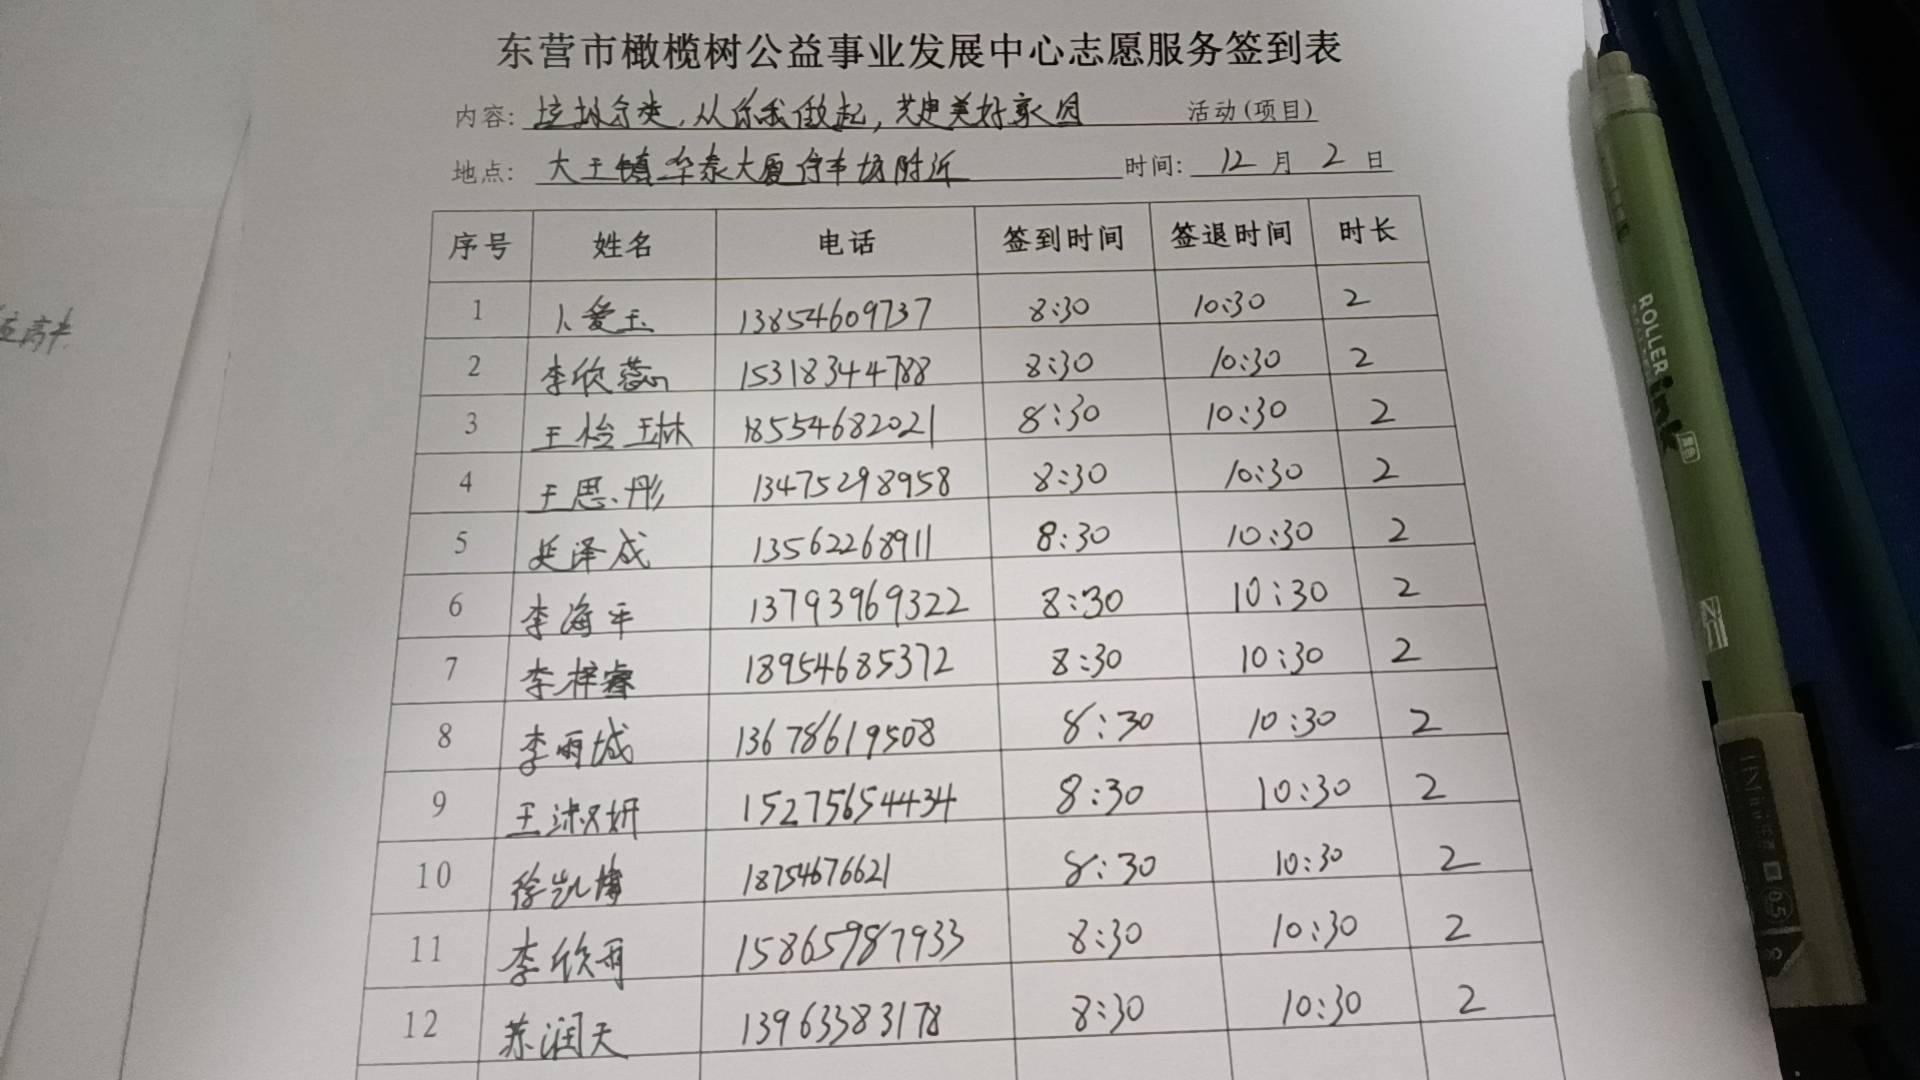 东营市橄榄树公益事业发展中心志愿服务签到表
内容: 垃圾分类,从你我做起,共建美好家园 活动(项目)
地点: 大王镇华泰大厦停车场附近 时间: 12月2日
序号 姓名 电话 签到时间 签退时间 时长
1 爱玉 13854609737 8:30 10:30 2
2 李欣蕊 15318344788 8:30 10:30 2
3 王怡琳 18554682021 8:30 10:30 2
4 王思彤 13475298958 8:30 10:30 2
5 延泽成 13562268911 8:30 10:30 2
6 李海平 13793969322 8:30 10:30 2
7 李梓睿 18954685372 8:30 10:30 2
8 李雨城 13678619508 8:30 10:30 2
9 王淑妍 15275654434 8:30 10:30 2
10 徐凯博 18754676621 8:30 10:30 2
11 李欣雨 15865987933 8:30 10:30 2
12 苏润天 13963383178 8:30 10:30 2
ROLLER
ink
0.5